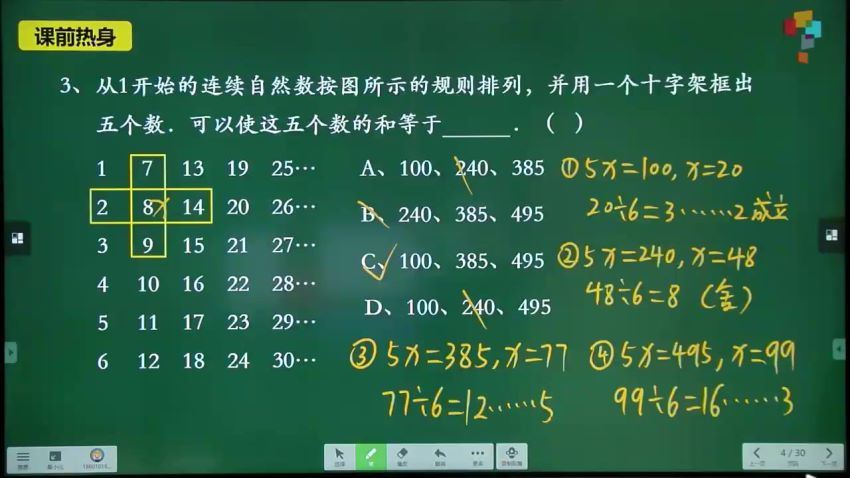 课前热身
3、从1开始的连续自然数按图所示的规则排列，并用一个十字架框出
五个数．可以使这五个数的和等于______．（ ）
1 7 13 19 25…
2 8x 14 20 26…
3 9 15 21 27…
4 10 16 22 28…
5 11 17 23 29…
6 12 18 24 30…
A、100、240、385
B、240、385、495
C、100、385、495
D、100、240、495
①5x=100, x=20
20÷6=3……2 成立
②5x=240, x=48
48÷6=8（舍）
③5x=385, x=77
77÷6=12……5
④5x=495, x=99
99÷6=16……3
选择
笔
橡皮
更多
4 / 30
上一页
下一页